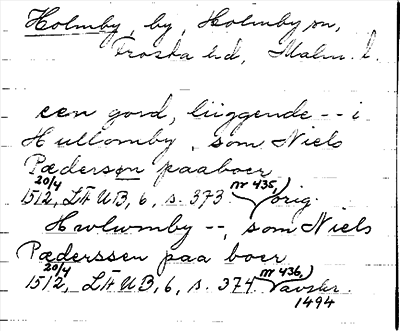 Holmby, by, Holmby sn,
Frosta hd, Malm. l.
een gord, liiggende -- i
Hullomby, som Niels
Pædersøn paaboer
20/4 nr 435,)
1512, LÆUB, 6, s. 373 orig.
Hwlwmby --, som Niels
Pæderssen paa boer
20/4 nr 436,)
1512, LÆUB, 6, s. 374 Vavskr.
1494